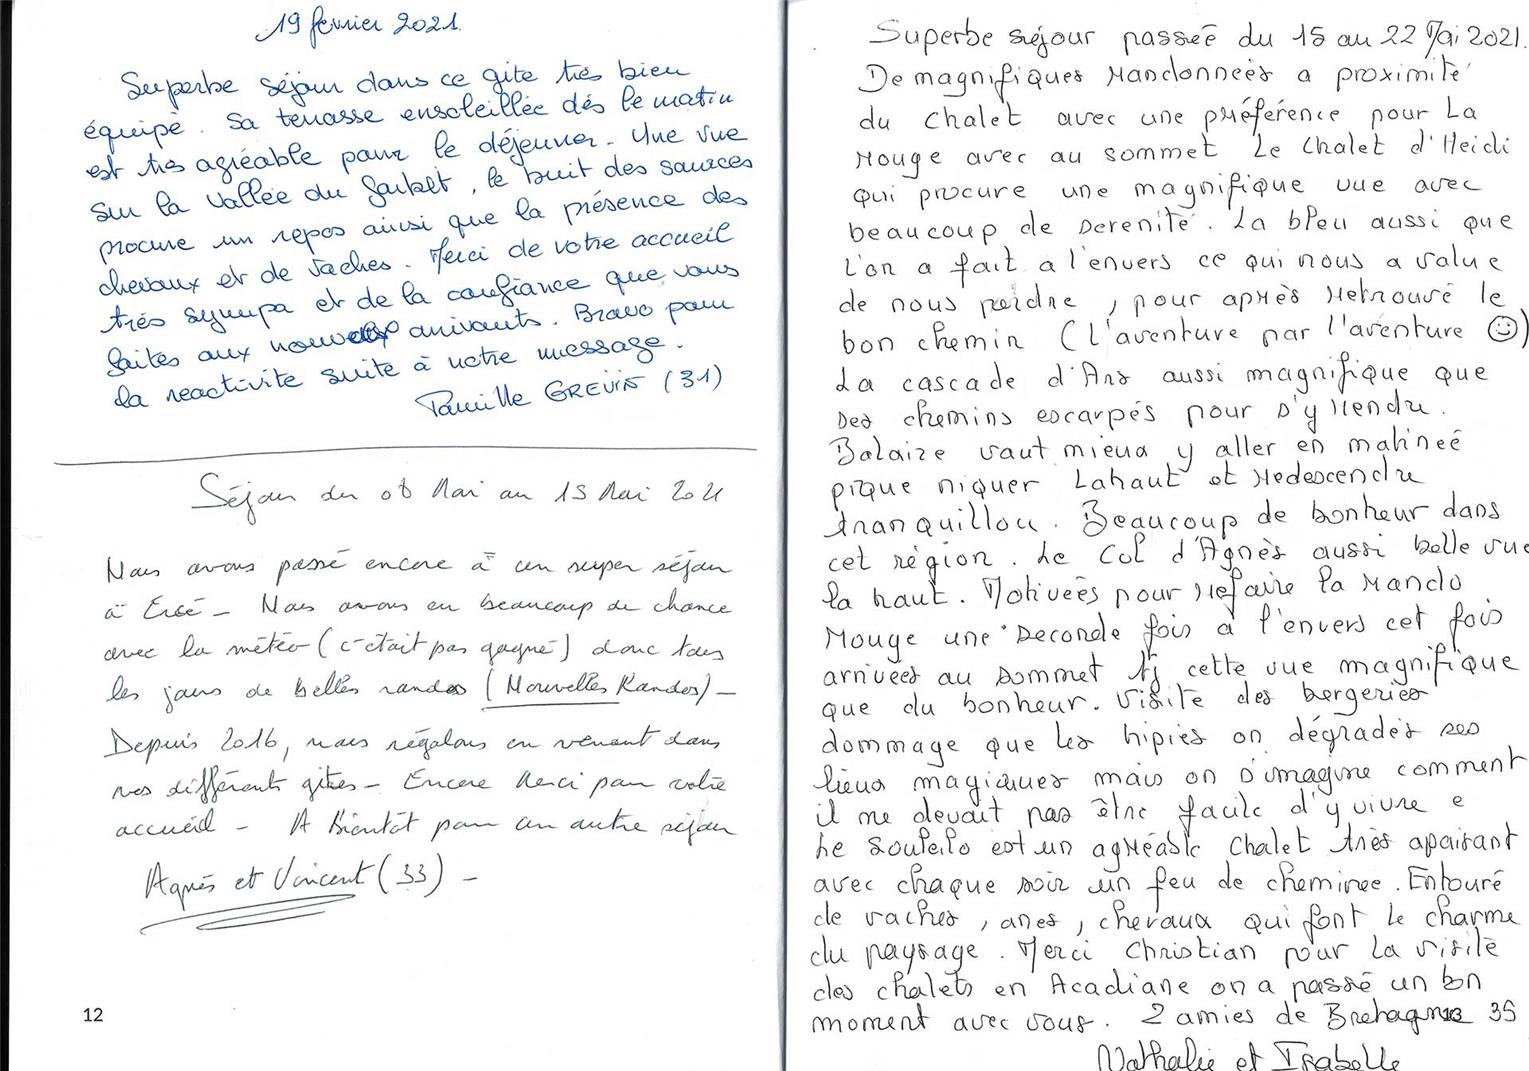 19 février 2021.
Superbe séjour dans ce gite très bien
équipé. Sa terrasse ensoleillée dés le matin
est très agréable pour le déjeuner. Une vue
sur la vallée du Garbet, le bruit des sources
procure un repos ainsi que la présence des
chevaux et de vaches. Merci de votre accueil
très sympa et de la confiance que vous
faites aux nouveaux arrivants. Bravo pour
la reactivite suite à notre message.
Famille GREVIN (31)
Séjour du 08 Mai au 15 Mai 2021
Nous avons passé encore à un super séjour
à Ercé - Nous avons eu beaucoup de chance
avec la météo (c'était pas gagné) donc tous
les jours de belles randos (Nouvelles Randos) -
Depuis 2016, nous régalons en venant dans
vos différents gîtes - Encore Merci pour votre
accueil - A Bientôt pour un autre séjour
Agnès et Vincent (33) -
12
Superbe séjour passée du 15 au 22 Mai 2021.
De magnifiques Randonneés a proximité
du chalet avec une préférence pour La
Rouge avec au sommet Le chalet d'Heidi
qui procure une magnifique vue avec
beaucoup de serenité. La bleu aussi que
l'on a fait a l'envers ce qui nous a value
de nous perdre, pour après retrouvé le
bon chemin (l'aventure par l'aventure ☺)
La cascade d'Ars aussi magnifique que
ses chemins escarpés pour s'y rendre.
Balaize vaut mieux y aller en matineé
pique niquer Lahaut et Redescendre
tranquillou. Beaucoup de bonheur dans
cet région. Le Col d'Agnès aussi belle vue
la haut. Motiveés pour refaire la Rando
Rouge une seconde fois a l'envers cet fois
arriveés au sommet cette vue magnifique
que du bonheur. Visite des bergeries
dommage que les hipies on dégradés ses
lieux magiques mais on s'imagine comment
il ne devait pas être facile d'y vivre
Le Souleilo est un agréable chalet très apaisant
avec chaque soir un feu de cheminee. Entouré
de vaches, anes, chevaux qui font le charme
du paysage. Merci Christian pour la visite
des chalets en Acadiane on a passé un bon
moment avec vous. 2 amies de Bretagne 35
13
Nathalie et Isabelle